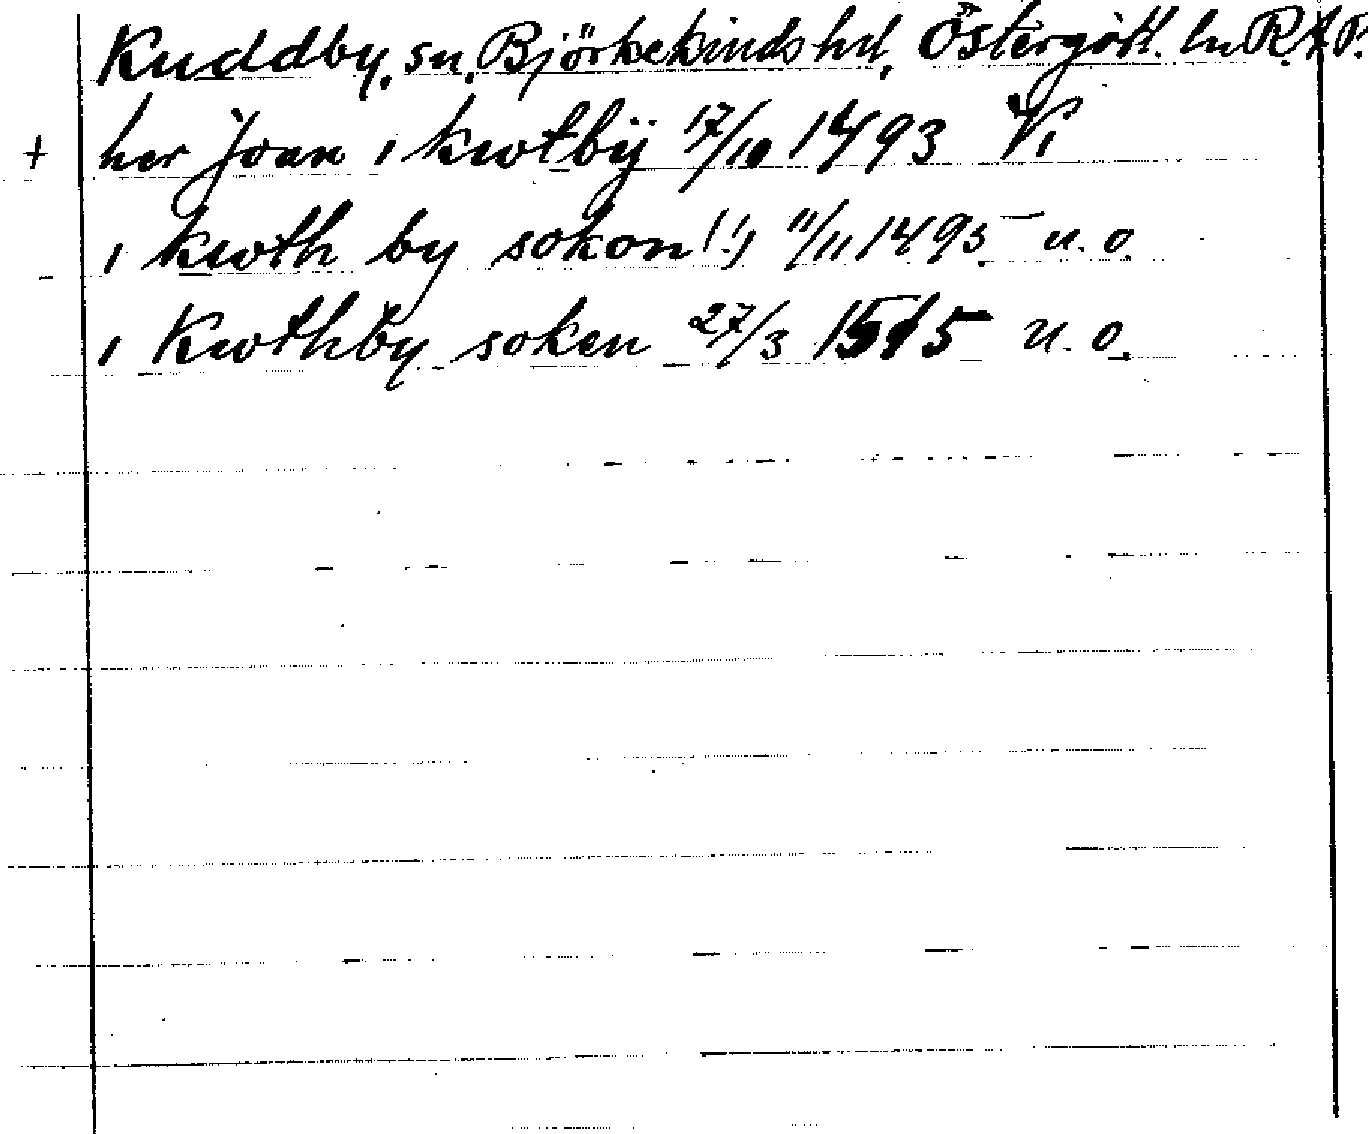 Kuddby, sn, Björkekinds hd, Östergötl. ln R.A.P.
+ her Joan i kwtby 17/10 1493 Vi
- i kwth by sokon (!) 11/11 1495 u. o.
i Kwthby soken 27/3 1515 u. o.